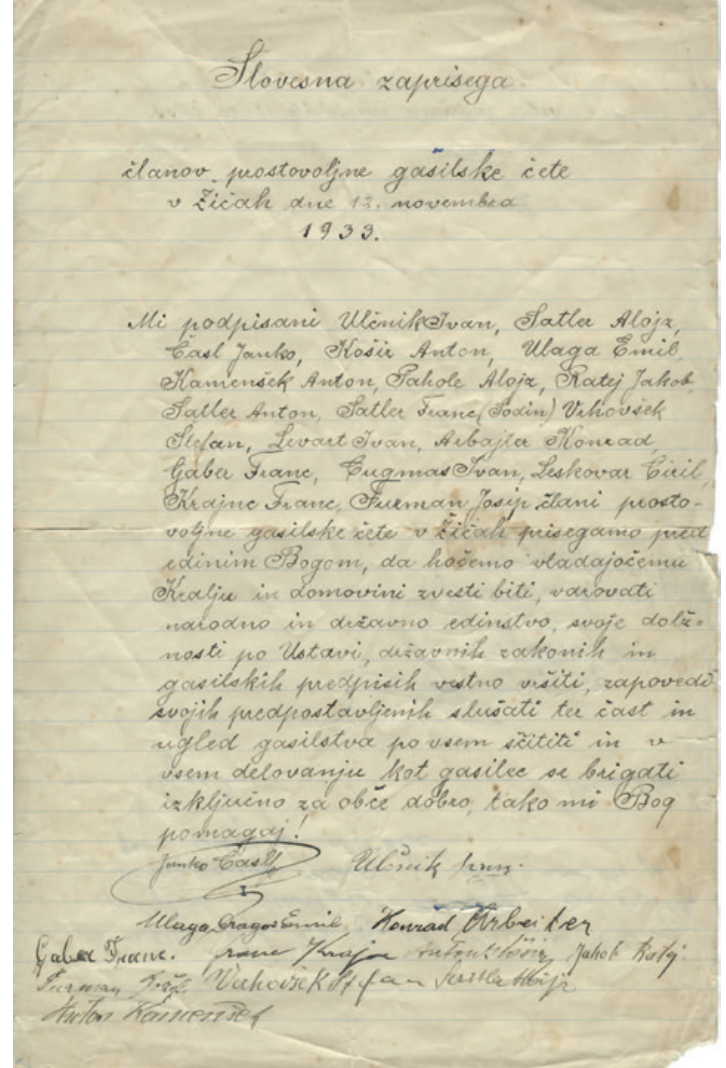 Slovesna zaprisega
članov prostovoljne gasilske čete
v Žičah dne 12. novembra
1933.
Mi podpisani Ulčnik Ivan, Satler Alojz,
Časl Janko, Košir Anton, Ulaga Emil,
Kamenšek Anton, Pahole Alojz, Ratej Jakob,
Satler Anton, Satler Franc (Sodin) Vrhovšek
Štefan, Levart Ivan, Arbajter Konrad,
Gaber Franc, Cugmas Ivan, Leskovar Ciril,
Krajnc Franc, Furman Josip člani prosto-
voljne gasilske čete v Žičah prisegamo pred
edinim Bogom, da hočemo vladajočemu
Kralju in domovini zvesti biti, varovati
narodno in državno edinstvo, svoje dolž-
nosti po Ustavi, državnih zakonih in
gasilskih predpisih vestno vršiti, zapovedi
svojih predpostavljenih slušati ter čast in
ugled gasilstva po vsem ščititi in v
vsem delovanju kot gasilec se brigati
izključno za obče dobro, tako mi Bog
pomagaj!
Janko Časl Ulčnik
Ulaga Emil Konrad Arbeiter
Gaber Franc. Franc Krajnc Anton Košir Jakob Ratej
Furman Vrhovšek Štefan
Anton Kamenšek